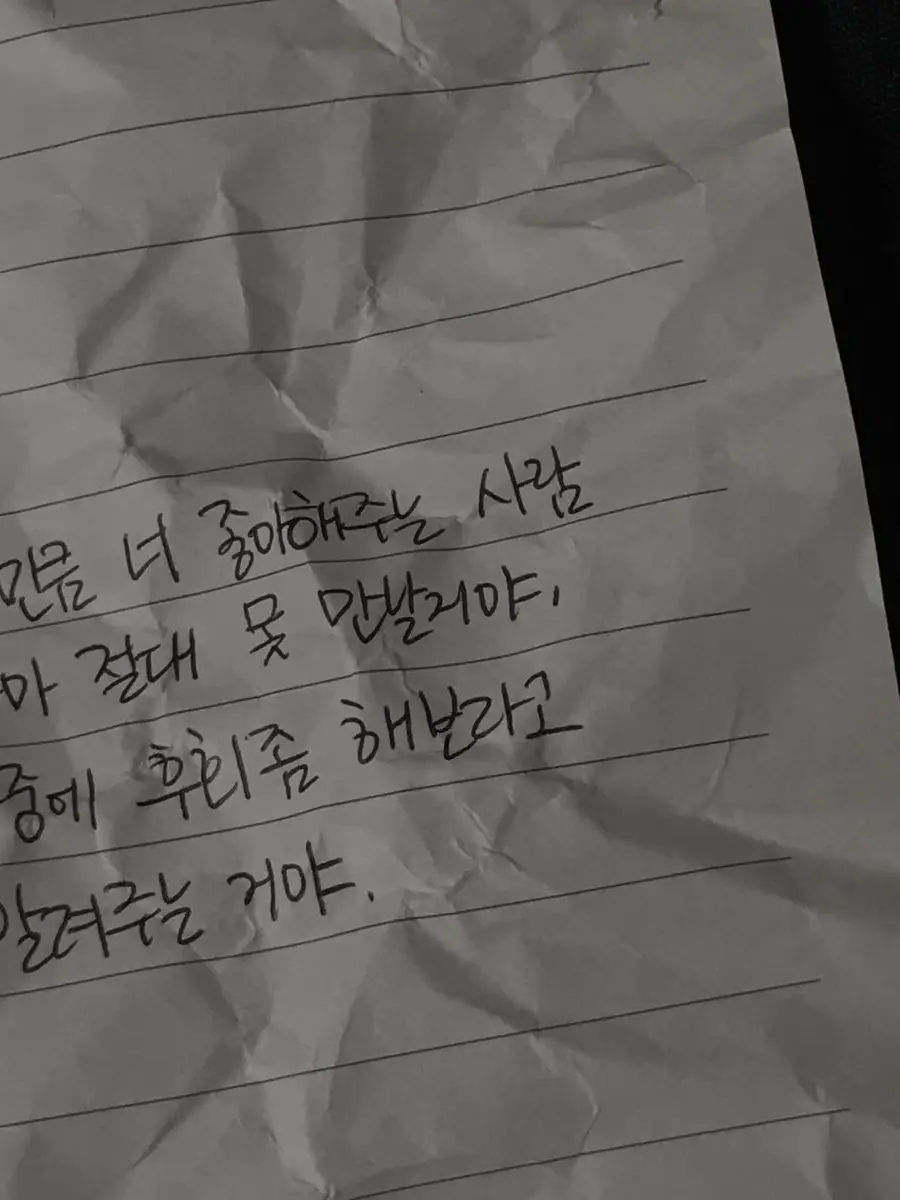 만큼 너 좋아해주는 사람
마 절대 못 만날거야.
중에 후회좀 해보라고
알려주는 거야.